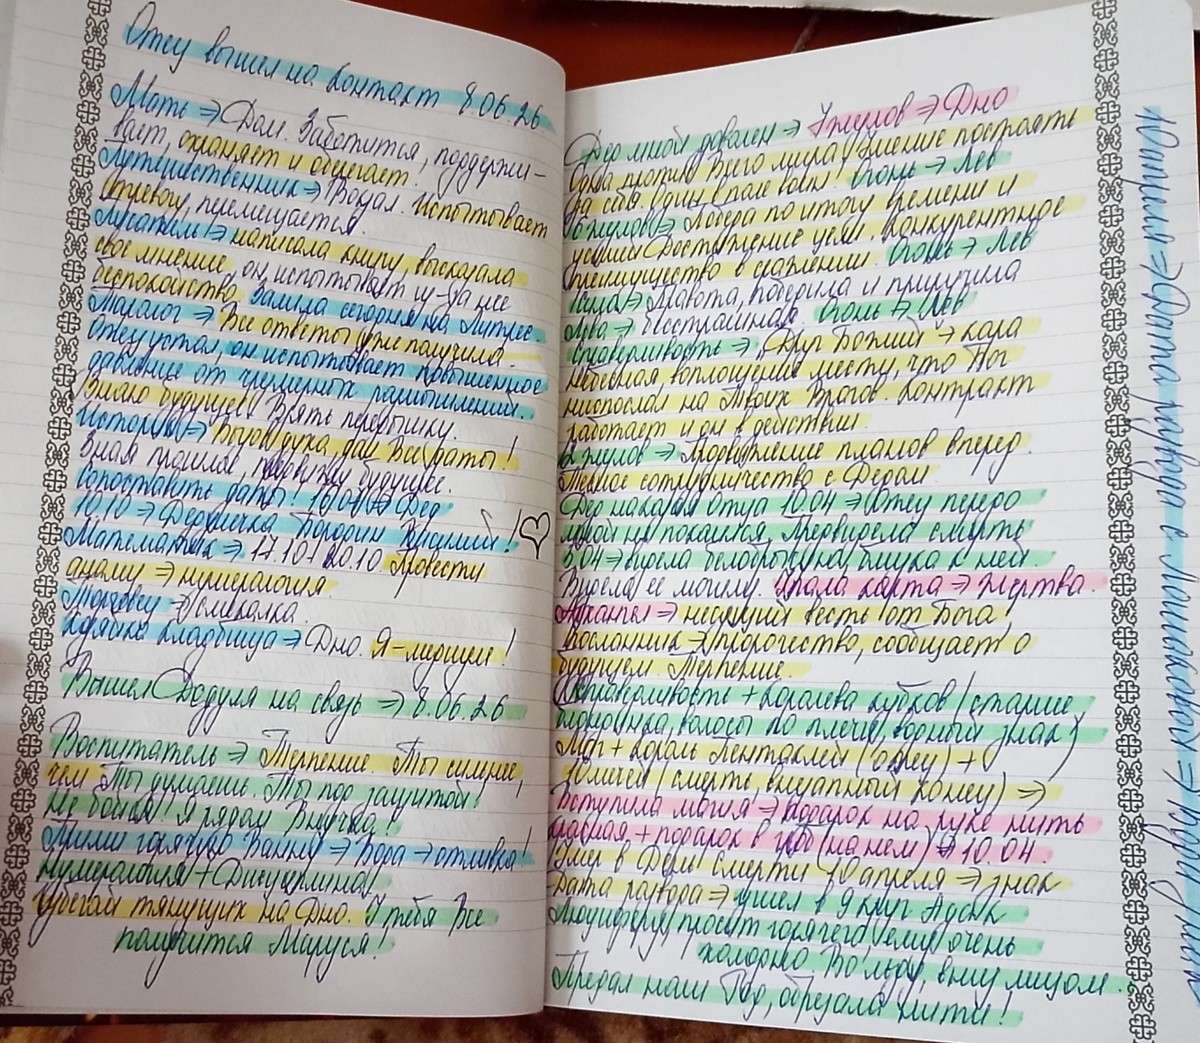 Отец вышел на контакт 8.06.26
Мать => Дом. Заботится, поддержи-
вает, охраняет и оберегает.
Путешественник => Вокзал. Испытывает
тревогу, перемещается.
Писатель => написала книгу, высказала
свое мнение, он испытывает из-за нее
беспокойство. Зашла сегодня на Литрес
Таролог => Все ответы уже получила.
Отец устал, он испытывает повышенное
давление от чрезмерных размышлений.
Знаю будущее! Взять передышку.
Историк => Вызов духа, дай Все даты!
Зная прошлое, предвижу будущее.
Сопоставить даты! 16.01 => Дед
10.10 => Бородин Виталий!
Математик => 17.10 / 20.10 Провести
=> нумерология.
Торговец => Смекалка.
Хозяйка кладбища => Дно. Я - медиум!
Вышел Дедуля на связь => 8.06.26
Воспитатель => Терпение. Ты сильнее,
чем Ты думаешь. Ты под защитой!
Не бойся! Я рядом Внучка!
Прими горячую Ванну => Вода => отливка!
Нумерология + Дисциплина!
Убегай тянущих на Дно. У тебя Все
получится Маруся!
Дед мной доволен => 7 жезлов => Дно
Одна против Всего мира! Умение постоять
за себя. Один в поле воин! Огонь => Лев
6 жезлов => Победа по итогу времени и
усилий. Достижение цели. Конкурентное
преимущество в сражении. Огонь => Лев
Сила => Доброта, победила и приручила
Льва => бесстрашная Огонь => Лев
Справедливость => Суд Божий => кара
небесная воплощение мести, что Бог
ниспослал на Твоих Врагов. Контракт
работает и он в действии.
жезлов => Продвижение планов вперед.
Тесное сотрудничество с Дедом.
Дед наказал отца 10.04 => Отец передо
мной не покаялся. Предвидела смерть
5.04 => видела белобрысую, близка к ней.
Видела ее могилу. Упала карта => Жертва.
несущий весть от Бога!
Посланник => Пророчество, сообщает о
будущем. Терпение.
Справедливость + Королева кубков (старше
блондинка, волосы по плечи, водный знак)
Маг + Король Пентаклей (отец) +
10 мечей (смерть, внезапный конец) =>
Вступила магия => подарок на руке нить
красная + подарок в гроб (на нем) => 10.04.
Умер в День смерти 10 апреля => знак
Дата развода => ушел в 9 круг Ада к
Люциферу, просит горячего ему очень
холодно. Во льду, вниз лицом.
Предал наш Род, обрезала нити!